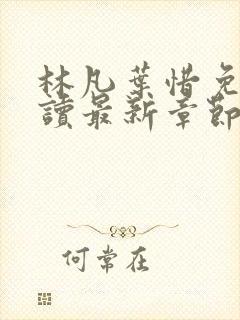 林凡葉惜免
讀最新章節
何常在